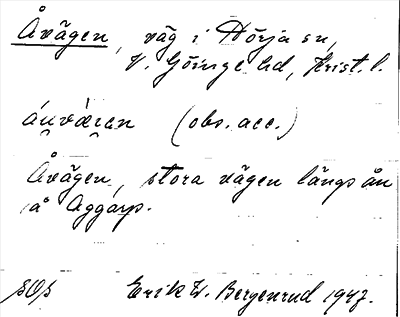 Åvägen, väg i Hörja sn,
V. Göinge hd, Krist. l.
áu̯væ̀ræn (obs. acc.)
Åvägen, stora vägen längs ån
å Aggarp.
SOS Erik W. Bergenrud 1947.